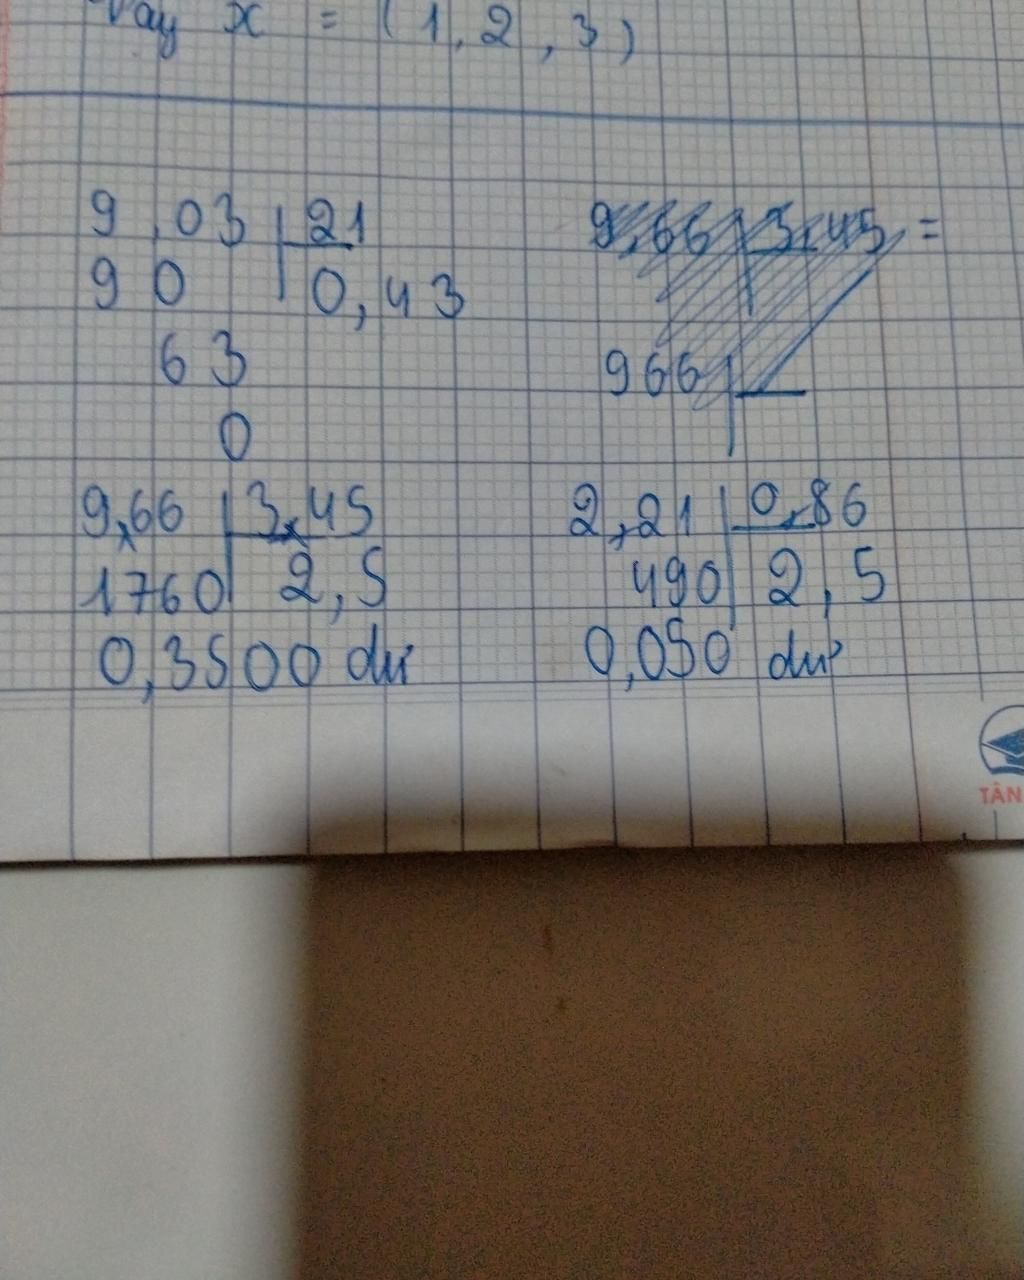 Vậy x = (1, 2, 3)
9,03 21
90 0,43
63
0
9,66 3,45 =
966
9,66 3,45
1760 2,5
0,3500 dư
2,21 0,86
490 2,5
0,050 dư
TÂN